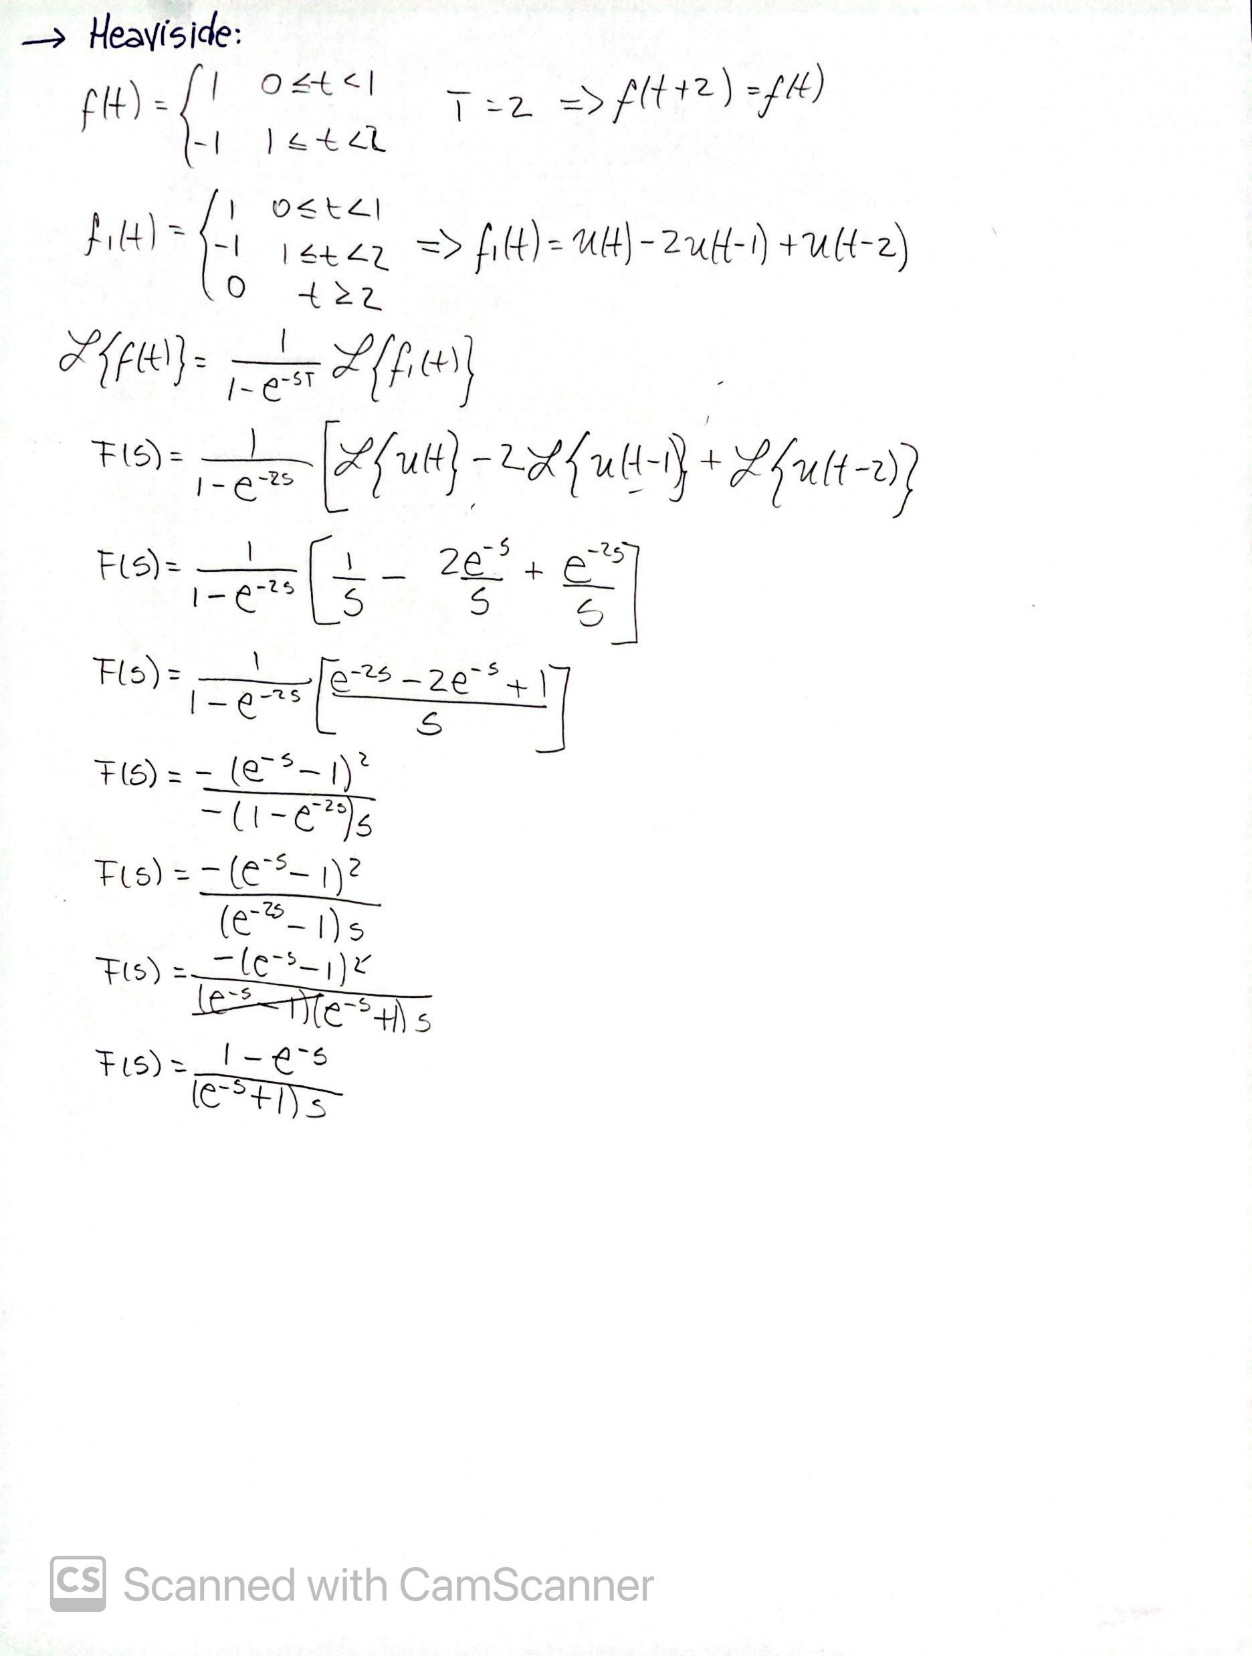 → Heaviside:
f(t) = { 1 0≤t<1
-1 1≤t<2 T=2 => f(t+2)=f(t)
f₁(t) = { 1 0≤t<1
-1 1≤t<2 => f₁(t) = u(t) - 2u(t-1) + u(t-2)
0 t≥2
ℒ{f(t)} = 1/(1-e^-sT) ℒ{f₁(t)}
F(s) = 1/(1-e^-2s) [ℒ{u(t} - 2ℒ{u(t-1)} + ℒ{u(t-2)}
F(s) = 1/(1-e^-2s) [1/s - 2e^-s/s + e^-2s/s]
F(s) = 1/(1-e^-2s) [(e^-2s - 2e^-s + 1)/s]
F(s) = -(e^-s - 1)²/-(1-e^-2s)s
F(s) = -(e^-s - 1)²/(e^-2s - 1)s
F(s) = -(e^-s - 1)²/(e^-s - 1)(e^-s + 1)s
F(s) = 1-e^-s/(e^-s + 1)s
CS Scanned with CamScanner